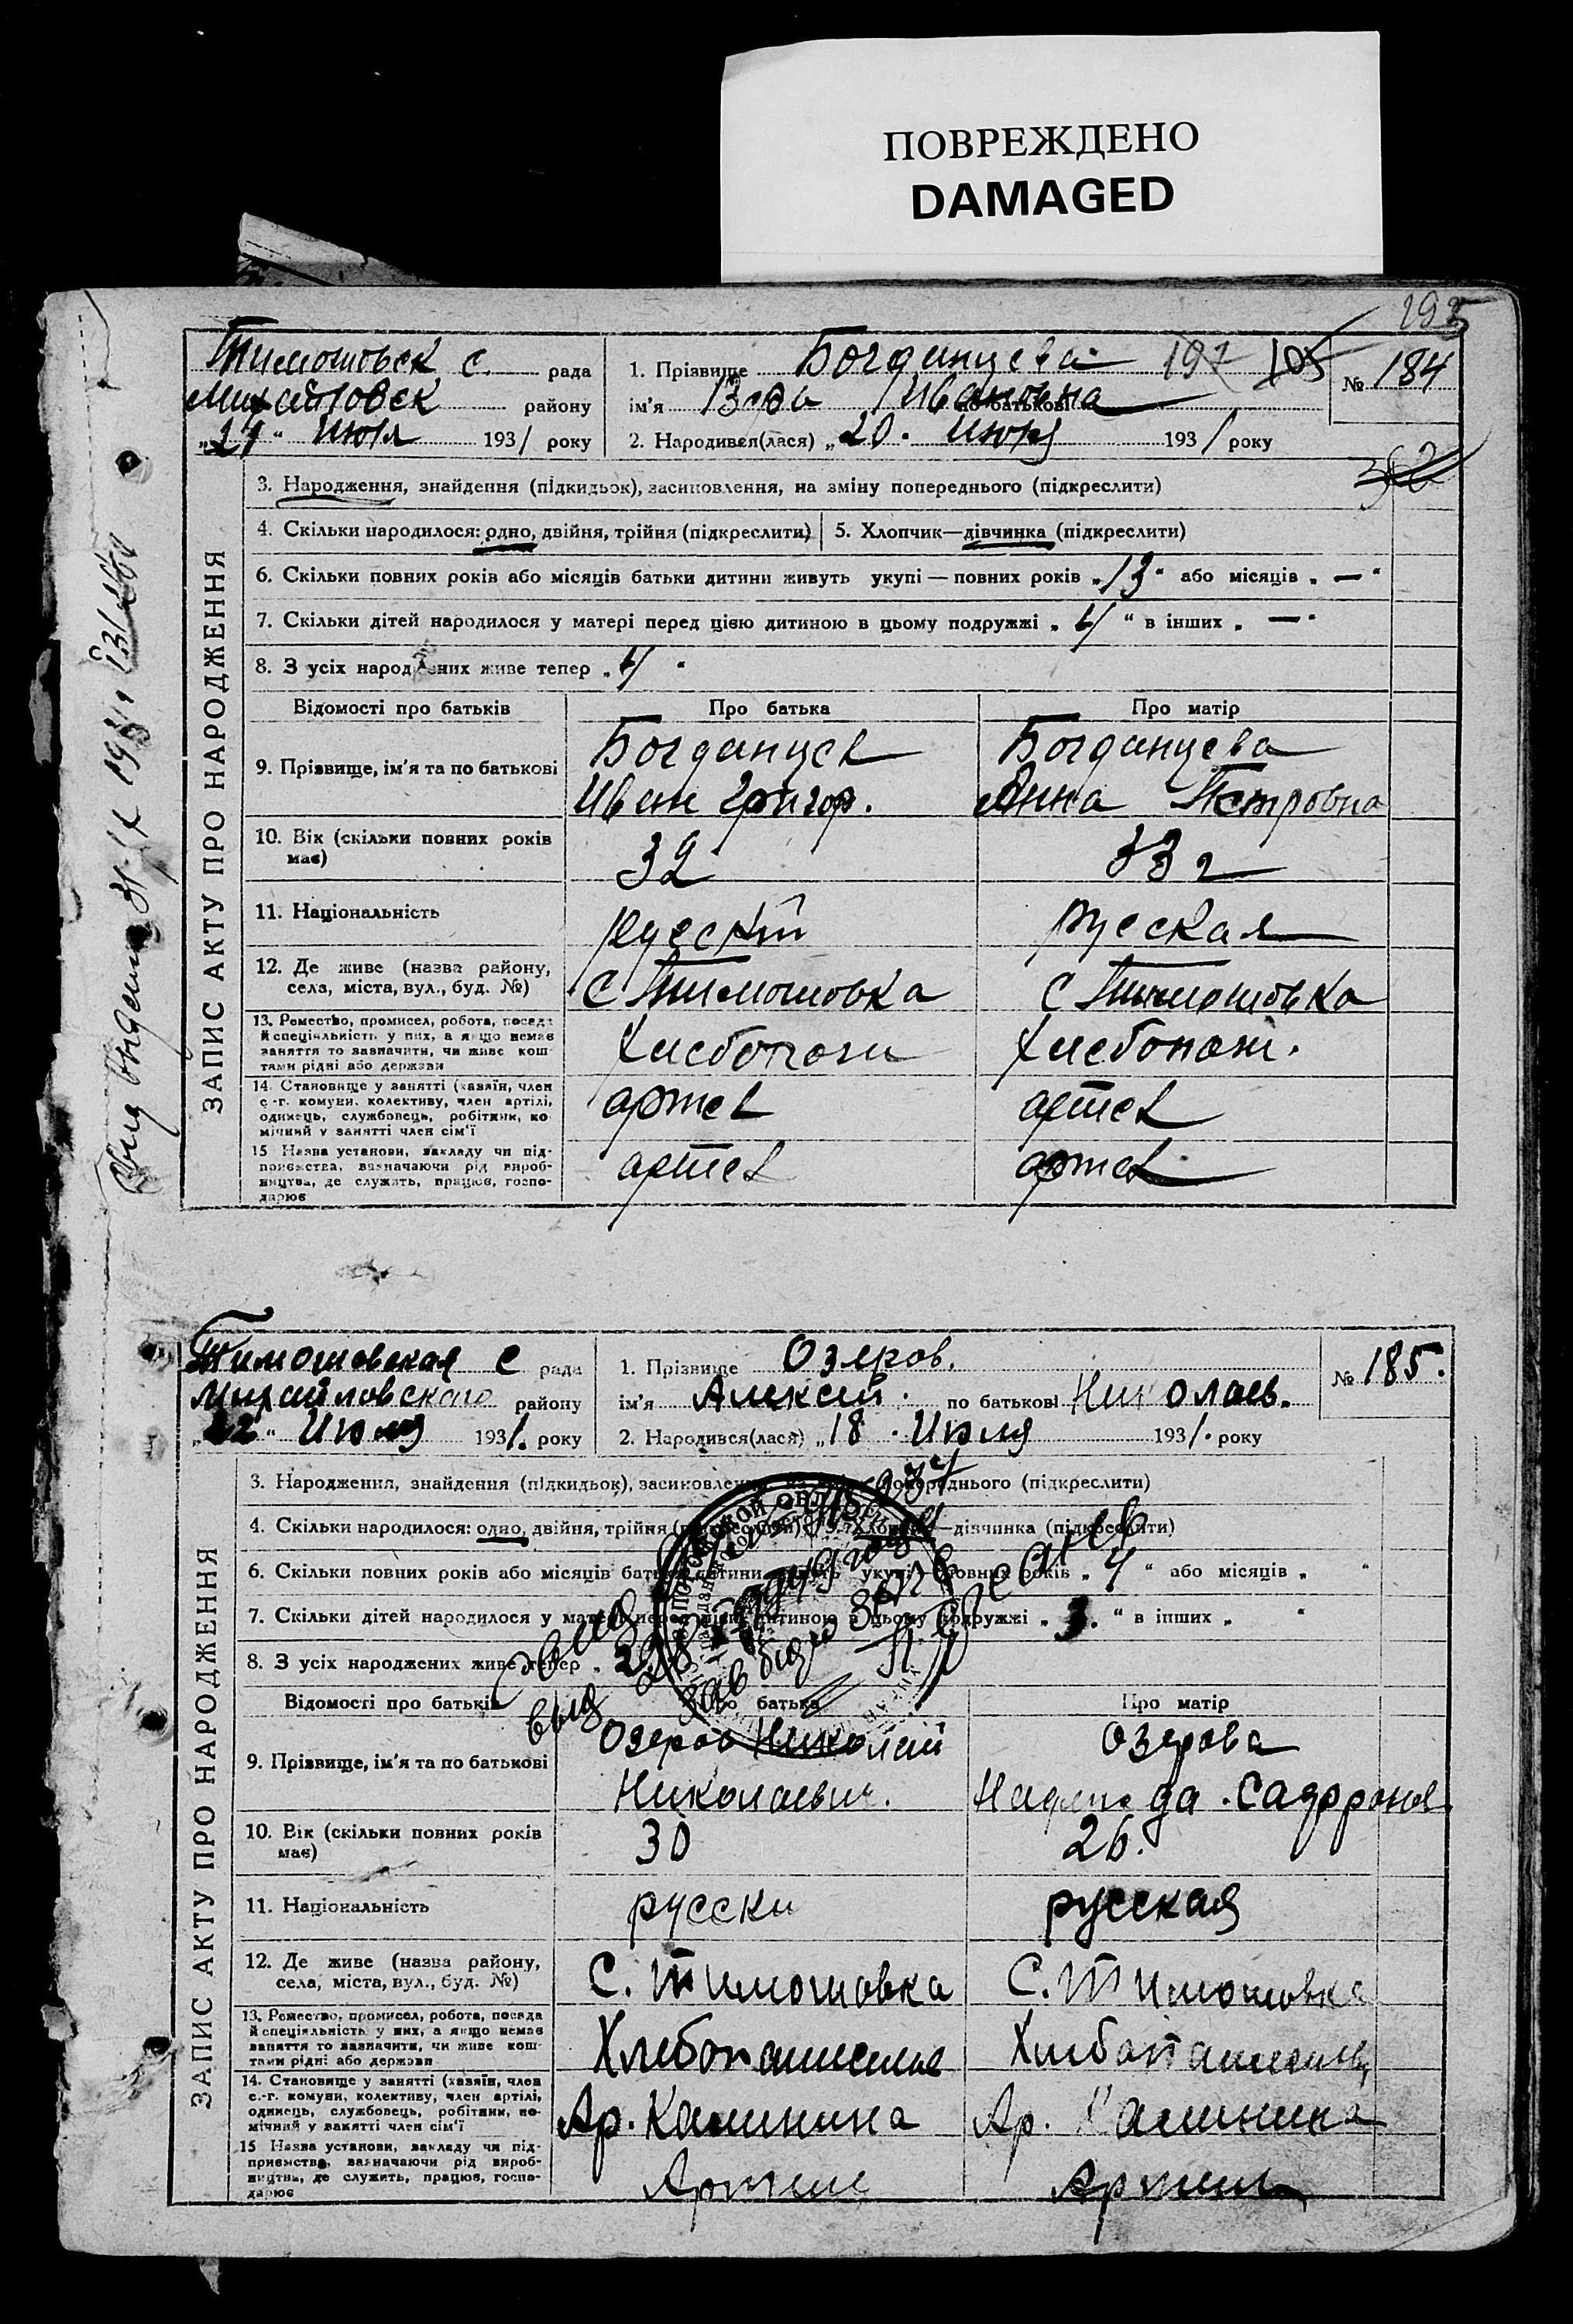 ПОВРЕЖДЕНО
DAMAGED
Тимошовск с. рада
Михайловск району
193/ року
1. Прізвище Богданцева 105
ім'я по батькові Ивановна
2. Народився(лася) „20. 193/ року
№ 184
ЗАПИС АКТУ ПРО НАРОДЖЕННЯ
3. Народження, знайдення (підкидьок), засиновлення, на зміну попереднього (підкреслити)
4. Скільки народилося: одно, двійня, трійня (підкреслити) 5. Хлопчик—дівчинка (підкреслити)
6. Скільки повних років або місяців батьки дитини живуть укупі — повних років „13“ або місяців „—“
7. Скільки дітей народилося у матері перед цією дитиною в цьому подружжі „ “ в інших „—“
8. З усіх народжених живе тепер „ “
Відомості про батьків Про батька Про матір
9. Прізвище, ім'я та по батькові
Богданцев Богданцева
Иван Григор. Анна Петровна
10. Вік (скільки повних років має) 32 33 г
11. Національність русский русская
12. Де живе (назва району,
села, міста, вул., буд. №) С Тимошовка С Тимошовка
13. Ремество, промисел, робота, посада
й спеціяльність у них, а якщо немає
заняття то зазначити, чи живе кош-
тами рідні або держави
Хлебопаш Хлебопаш.
14. Становище у занятті (хазяїн, член
с.-г. комуни, колективу, член артілі,
одинець, службовець, робітник, по-
мічний у занятті член сім'ї
артел артел
15 Назва установи, закладу чи під-
приємства, вазначаючи рід вироб-
ництва, де служить, працює, госпо-
дарює
артел артел
Тимошовская с рада
Михайловского району
„22“ Июля 193/. року
1. Прізвище Озеров.
ім'я Алексей. по батькові Николаев.
2. Народився(лася) „18. Июля 193/. року
№ 185.
ЗАПИС АКТУ ПРО НАРОДЖЕННЯ
3. Народження, знайдення (підкидьок), засиновлення, на зміну попереднього (підкреслити)
4. Скільки народилося: одно, двійня, трійня (підкреслити) 5. Хлопчик—дівчинка (підкреслити)
6. Скільки повних років або місяців батьки дитини живуть укупі — повних років „4“ або місяців „ “
7. Скільки дітей народилося у матері перед цією дитиною в цьому подружжі „3.“ в інших „ “
8. З усіх народжених живе тепер „
Відомості про батьків Про батька Про матір
9. Прізвище, ім'я та по батькові
Озеров Николай Озерова
Николаевич. Надежда
10. Вік (скільки повних років має) 30 26.
11. Національність русски русская
12. Де живе (назва району,
села, міста, вул., буд. №) С. Тимошовка С. Тимошовка
13. Ремество, промисел, робота, посада
й спеціяльність у них, а якщо немає
заняття то зазначити, чи живе кош-
тами рідні або держави
14. Становище у занятті (хазяїн, член
с.-г. комуни, колективу, член артілі,
одинець, службовець, робітник, по-
мічний у занятті член сім'ї
Ар. Калинина Ар. Калинина
15 Назва установи, закладу чи під-
приємства, вазначаючи рід вироб-
ництва, де служить, працює, госпо-
дарює
Артель Артель